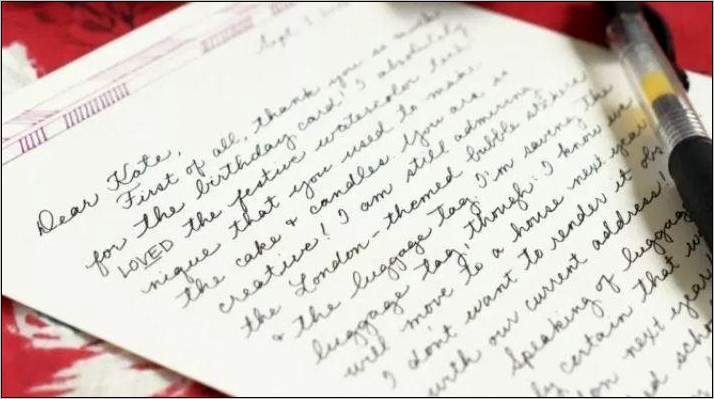 Sept. 3
Dear Kate,
First of all, thank you so much
for the birthday card! I absolutely
LOVED the festive watercolor tech-
nique that you used to make
the cake & candles. You are so
creative! I am still admiring
the London-themed bubble stickers
& the luggage tag. I'm saving the
luggage tag, though. I know we
will move to a house next year &
I don't want to render it obs
with our current address!
Speaking of luggage
certain that w
don next year!
d scho